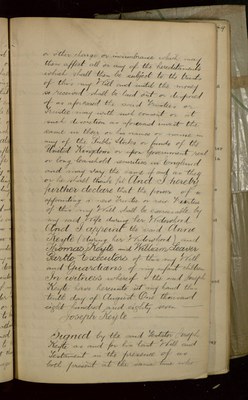 or other charge or incumbrance which may
then affect all or any of the hereditaments
which shall then be subject to the trusts
of this my Will and until the money
so received shall be laid out or disposed
of as aforesaid the said Trustees or
Trustee shall with such consent or at
such discretion as aforesaid invest the
same in their or his names or name in
any of the Public Stocks or funds of the
United Kingdom or upon Government real
or long leasehold securities in England
and may vary the same if and as they
or he shall think fit And I hereby
further declare that the power of
appointing a new Trustee or new Trustees
of this my Will shall be exercisable by
my said Wife during her Widowhood
And I appoint the said Anne
Keyte (during her Widowhood) and
Thomas Keyte and William
Executors of this my Will
and Guardians of my infant children
In witness whereof I the said Joseph
Keyte have hereunto set my hand the
tenth day of August One thousand
eight hundred and eighty seven
Joseph Keyte
Signed by the said Testator Joseph
Keyte as and for his last Will and
Testament in the presence of us
both present at the same time who